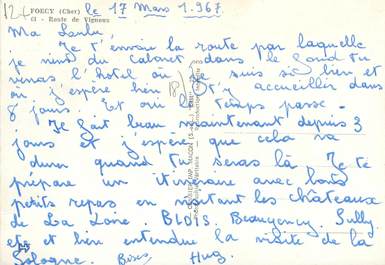 FOECY (Cher)
cl - Route de Vignoux
le 17 Mars 1.967
Ma Loulu.
Je t'envoie la route par laquelle
je viens du cabaret dans le fond tu
verras l'hôtel où je suis si bien et
où j'espère bien t'y accueillir dans
8 jours. Et oui le temps passe.
Il fait beau maintenant depuis 3
jours et j'espère que cela va
durer quand tu seras là. Je te
prépare un itinéraire avec bons
petits repas en visitant les châteaux
de La Loire. BLOIS. Beaugency. Sully.
etc et bien entendue la visite de la
Sologne. Bises Hug.